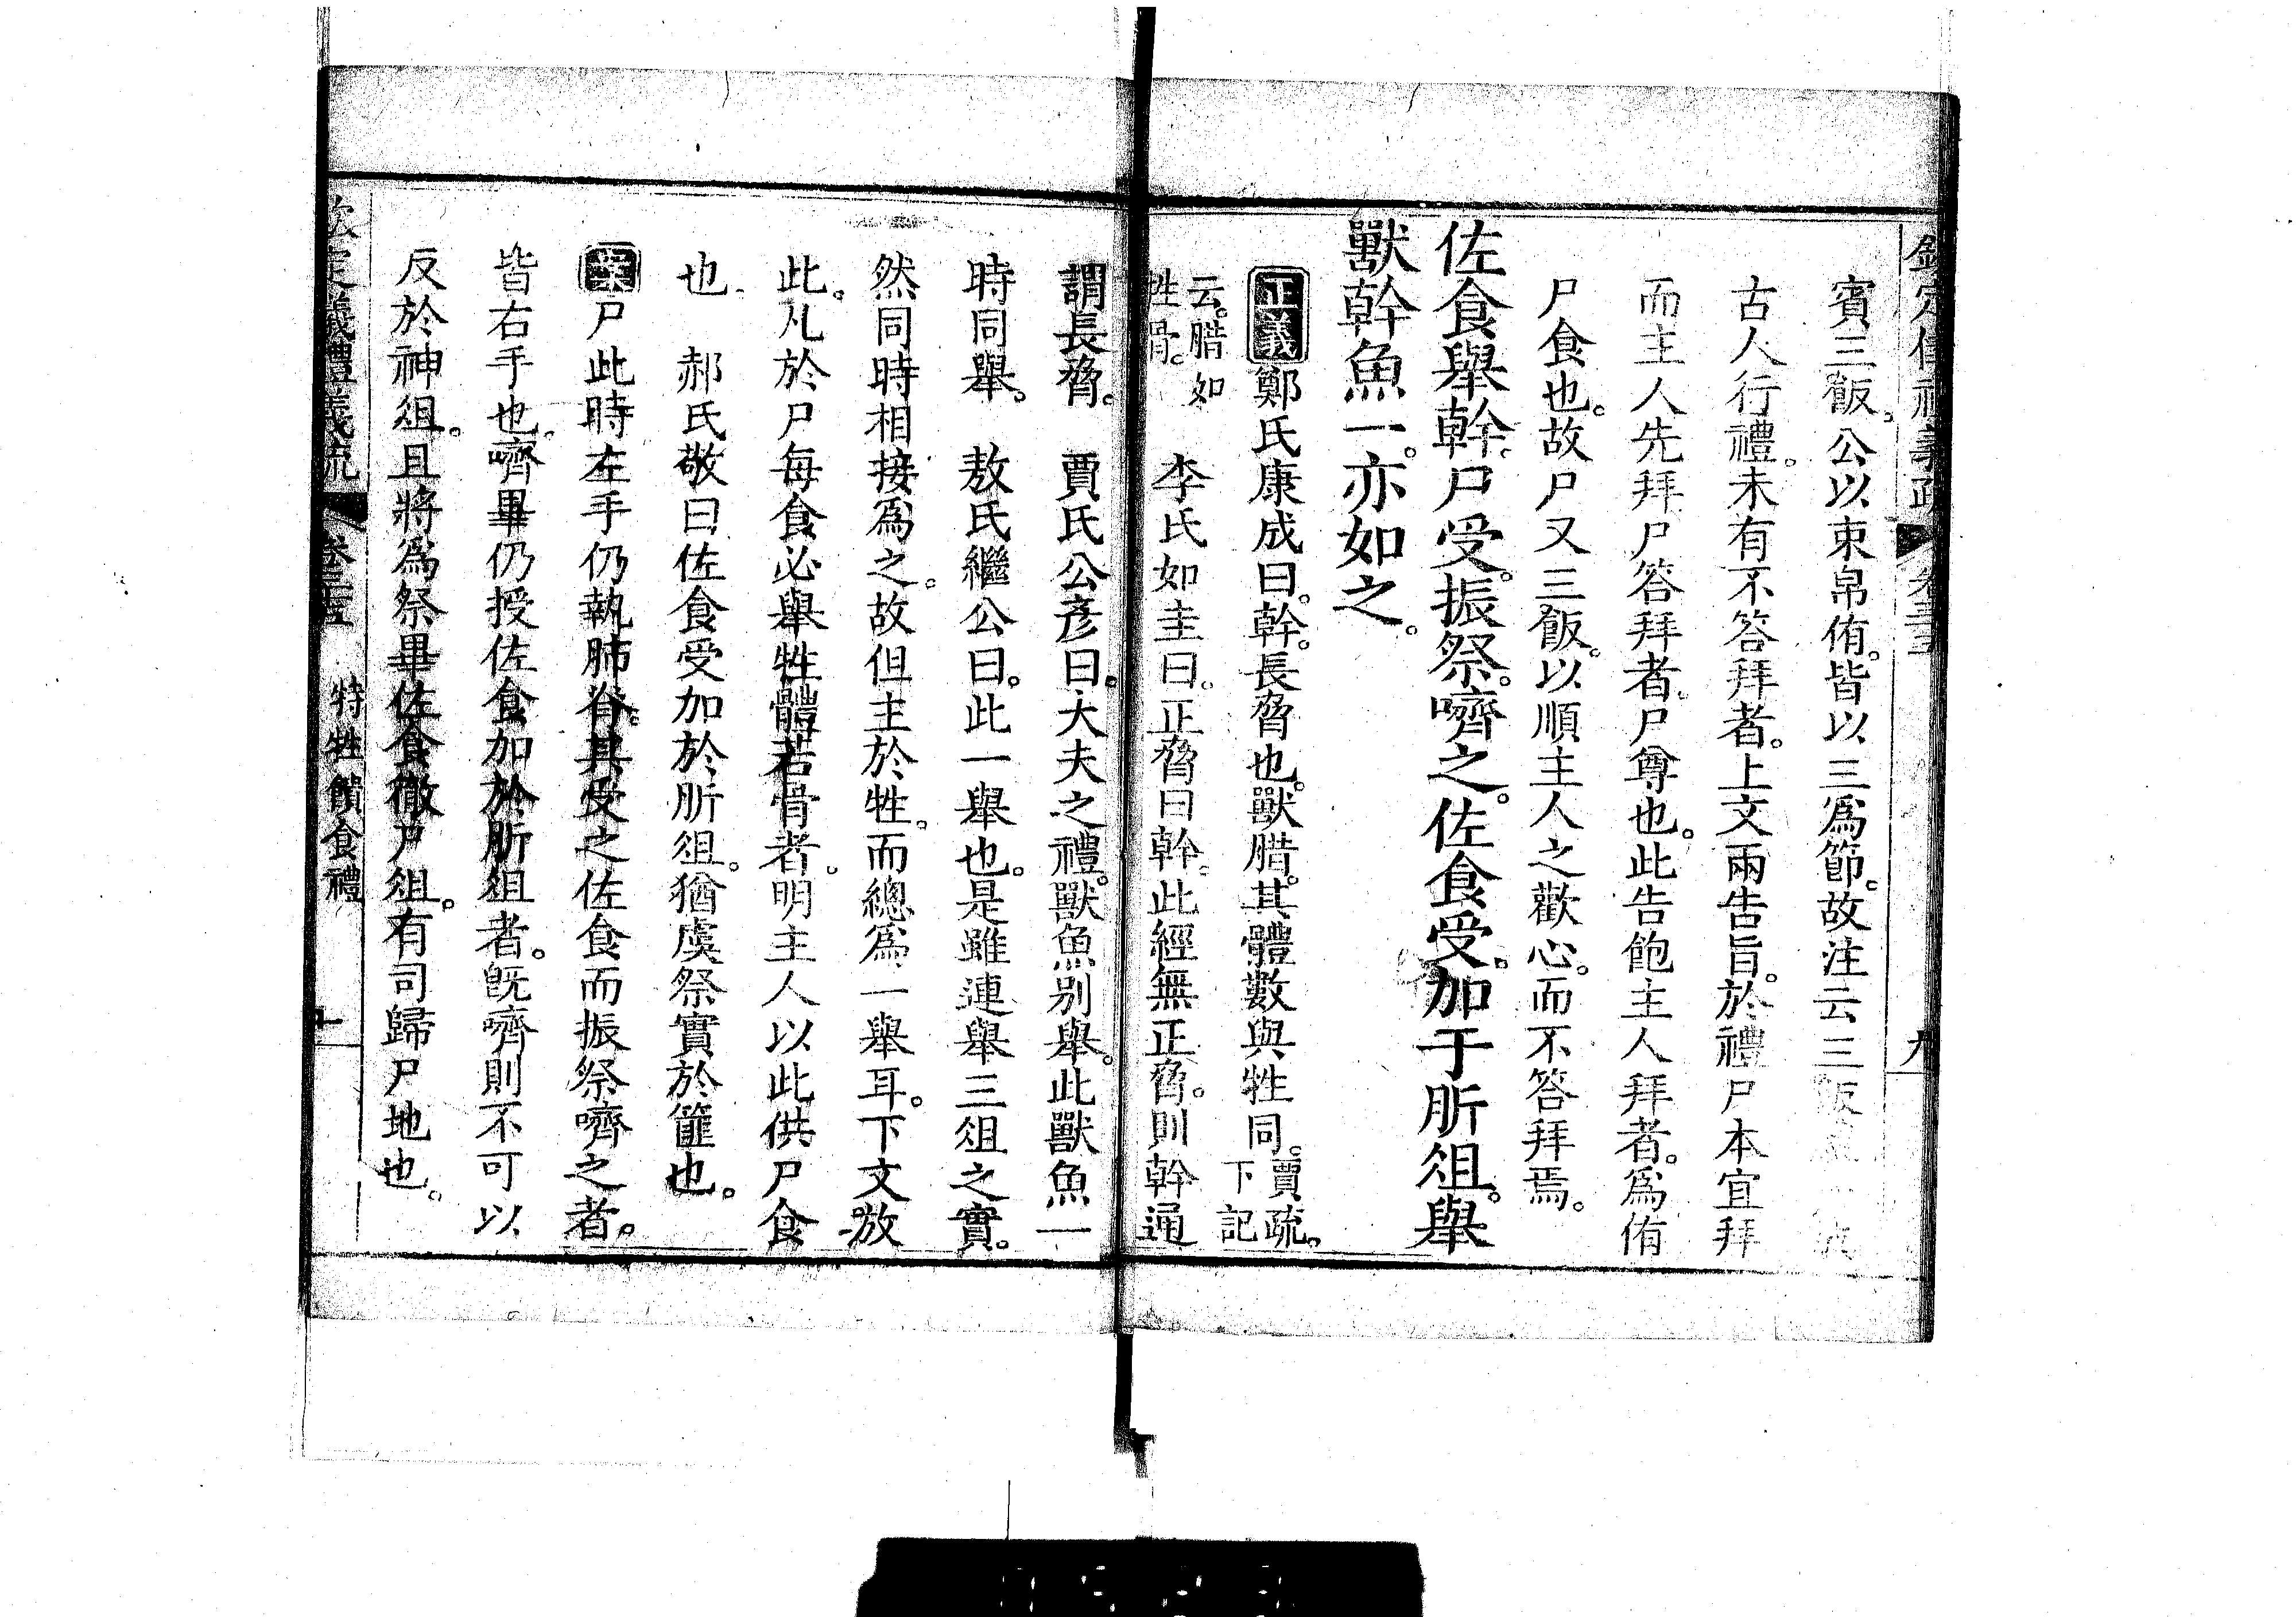 欽定儀禮義疏 卷三十五 九
賓三飯。公以束帛侑。皆以三爲節。故注云三飯
古人行禮。未有不答拜者。上文兩告旨。於禮尸本宜拜
而主人先拜尸答拜者。尸尊也。此告飽主人拜者。爲侑
尸食也。故尸又三飯。以順主人之歡心。而不答拜焉。
佐食舉幹。尸受。振祭。嚌之。佐食受。加于肵俎。舉
獸幹魚一。亦如之。
正義鄭氏康成曰。幹。長脅也。獸腊。其體數與牲同。賈疏。下記
云。腊如牲骨。 李氏如圭曰。正脅曰幹。此經無正脅。則幹通
謂長脅。 賈氏公彥曰。大夫之禮。獸魚別舉。此獸魚一
時同舉。 敖氏繼公曰。此一舉也。是雖連舉三俎之實。
然同時相接爲之。故但主於牲。而總爲一舉耳。下文放
此。凡於尸每食必舉牲體若骨者。明主人以此供尸食
也。 郝氏敬曰佐食受加於肵俎。猶虞祭實於篚也。
案尸此時左手仍執肺脊。其受之佐食而振祭嚌之者。
皆右手也。嚌畢仍授佐食加於肵俎者。旣嚌則不可以
反於神俎。且將爲祭畢佐食徹尸俎。有司歸尸地也。
欽定儀禮義疏 卷三十五 特牲饋食禮 十